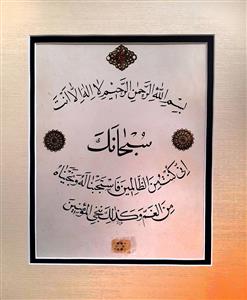 بِسْمِ اللهِ الرَّحْمٰنِ الرَّحِيْمِ لَا اِلٰهَ اِلَّا اَنْتَ
سُبْحَانَكَ
اِنِّي كُنْتُ مِنَ الظَّالِمِينَ فَاسْتَجَبْنَا لَهُ وَنَجَّيْنَاهُ
مِنَ الْغَمِّ وَكَذٰلِكَ نُنْجِي الْمُؤْمِنِينَ